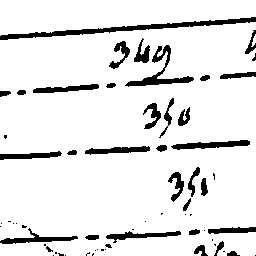 349
350
351